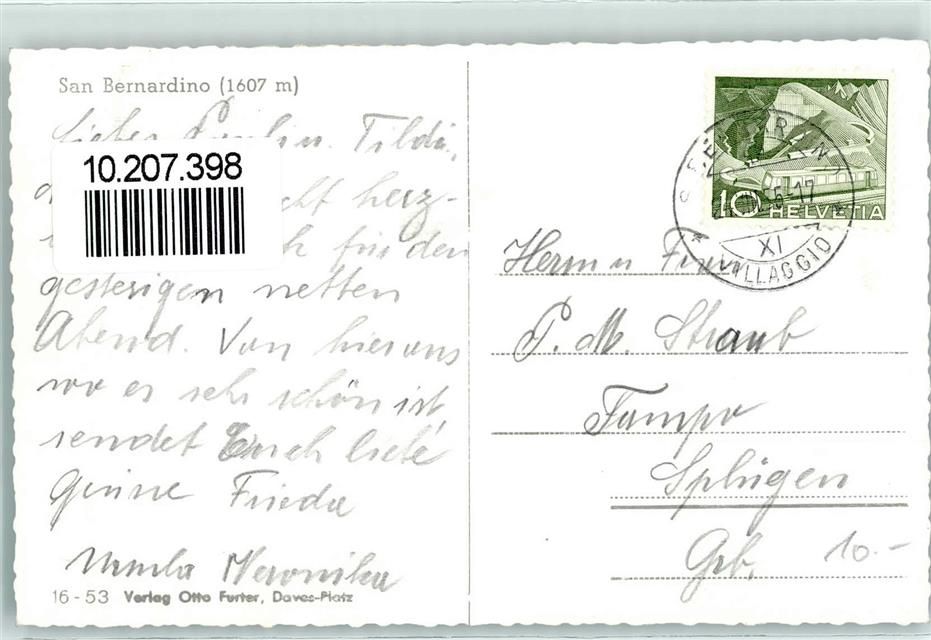 San Bernardino (1607 m)
Lieber Tildi,
10.207.398
herz-
für den
gestrigen netten
Abend. Von hier aus
wo es sehr schön ist
sendet Euch liebe
Grüsse Frieda
Ursula Veronika
16 - 53 Verlag Otto Furter, Davos-Platz
10 HELVETIA
XI
VILLAGGIO
Herrn u
P. M. Straub
Splügen
Grb. 10.-